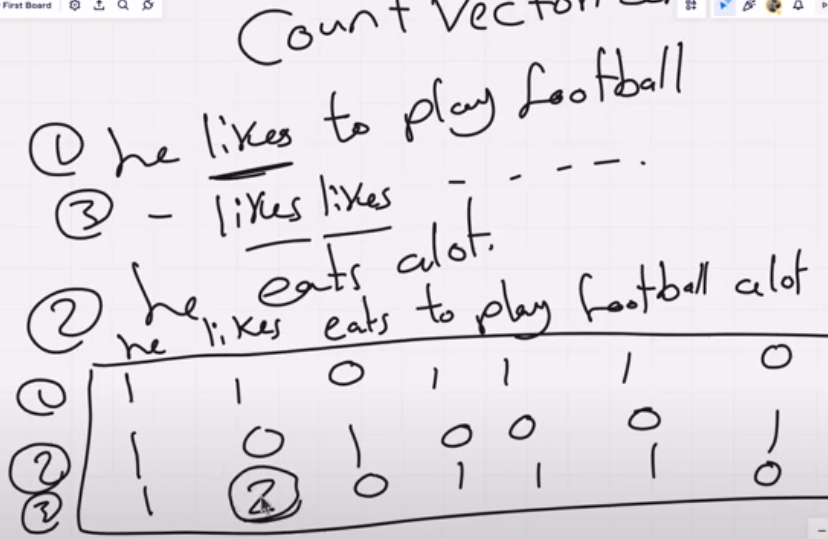 First Board
Count Vector
① he likes to play football
③ - likes likes - - - - .
② he eats alot.
he likes eats to play football alot
① 1 1 0 1 1 1 0
② 1 0 1 0 0 0 1
③ 1 2 0 1 1 1 0